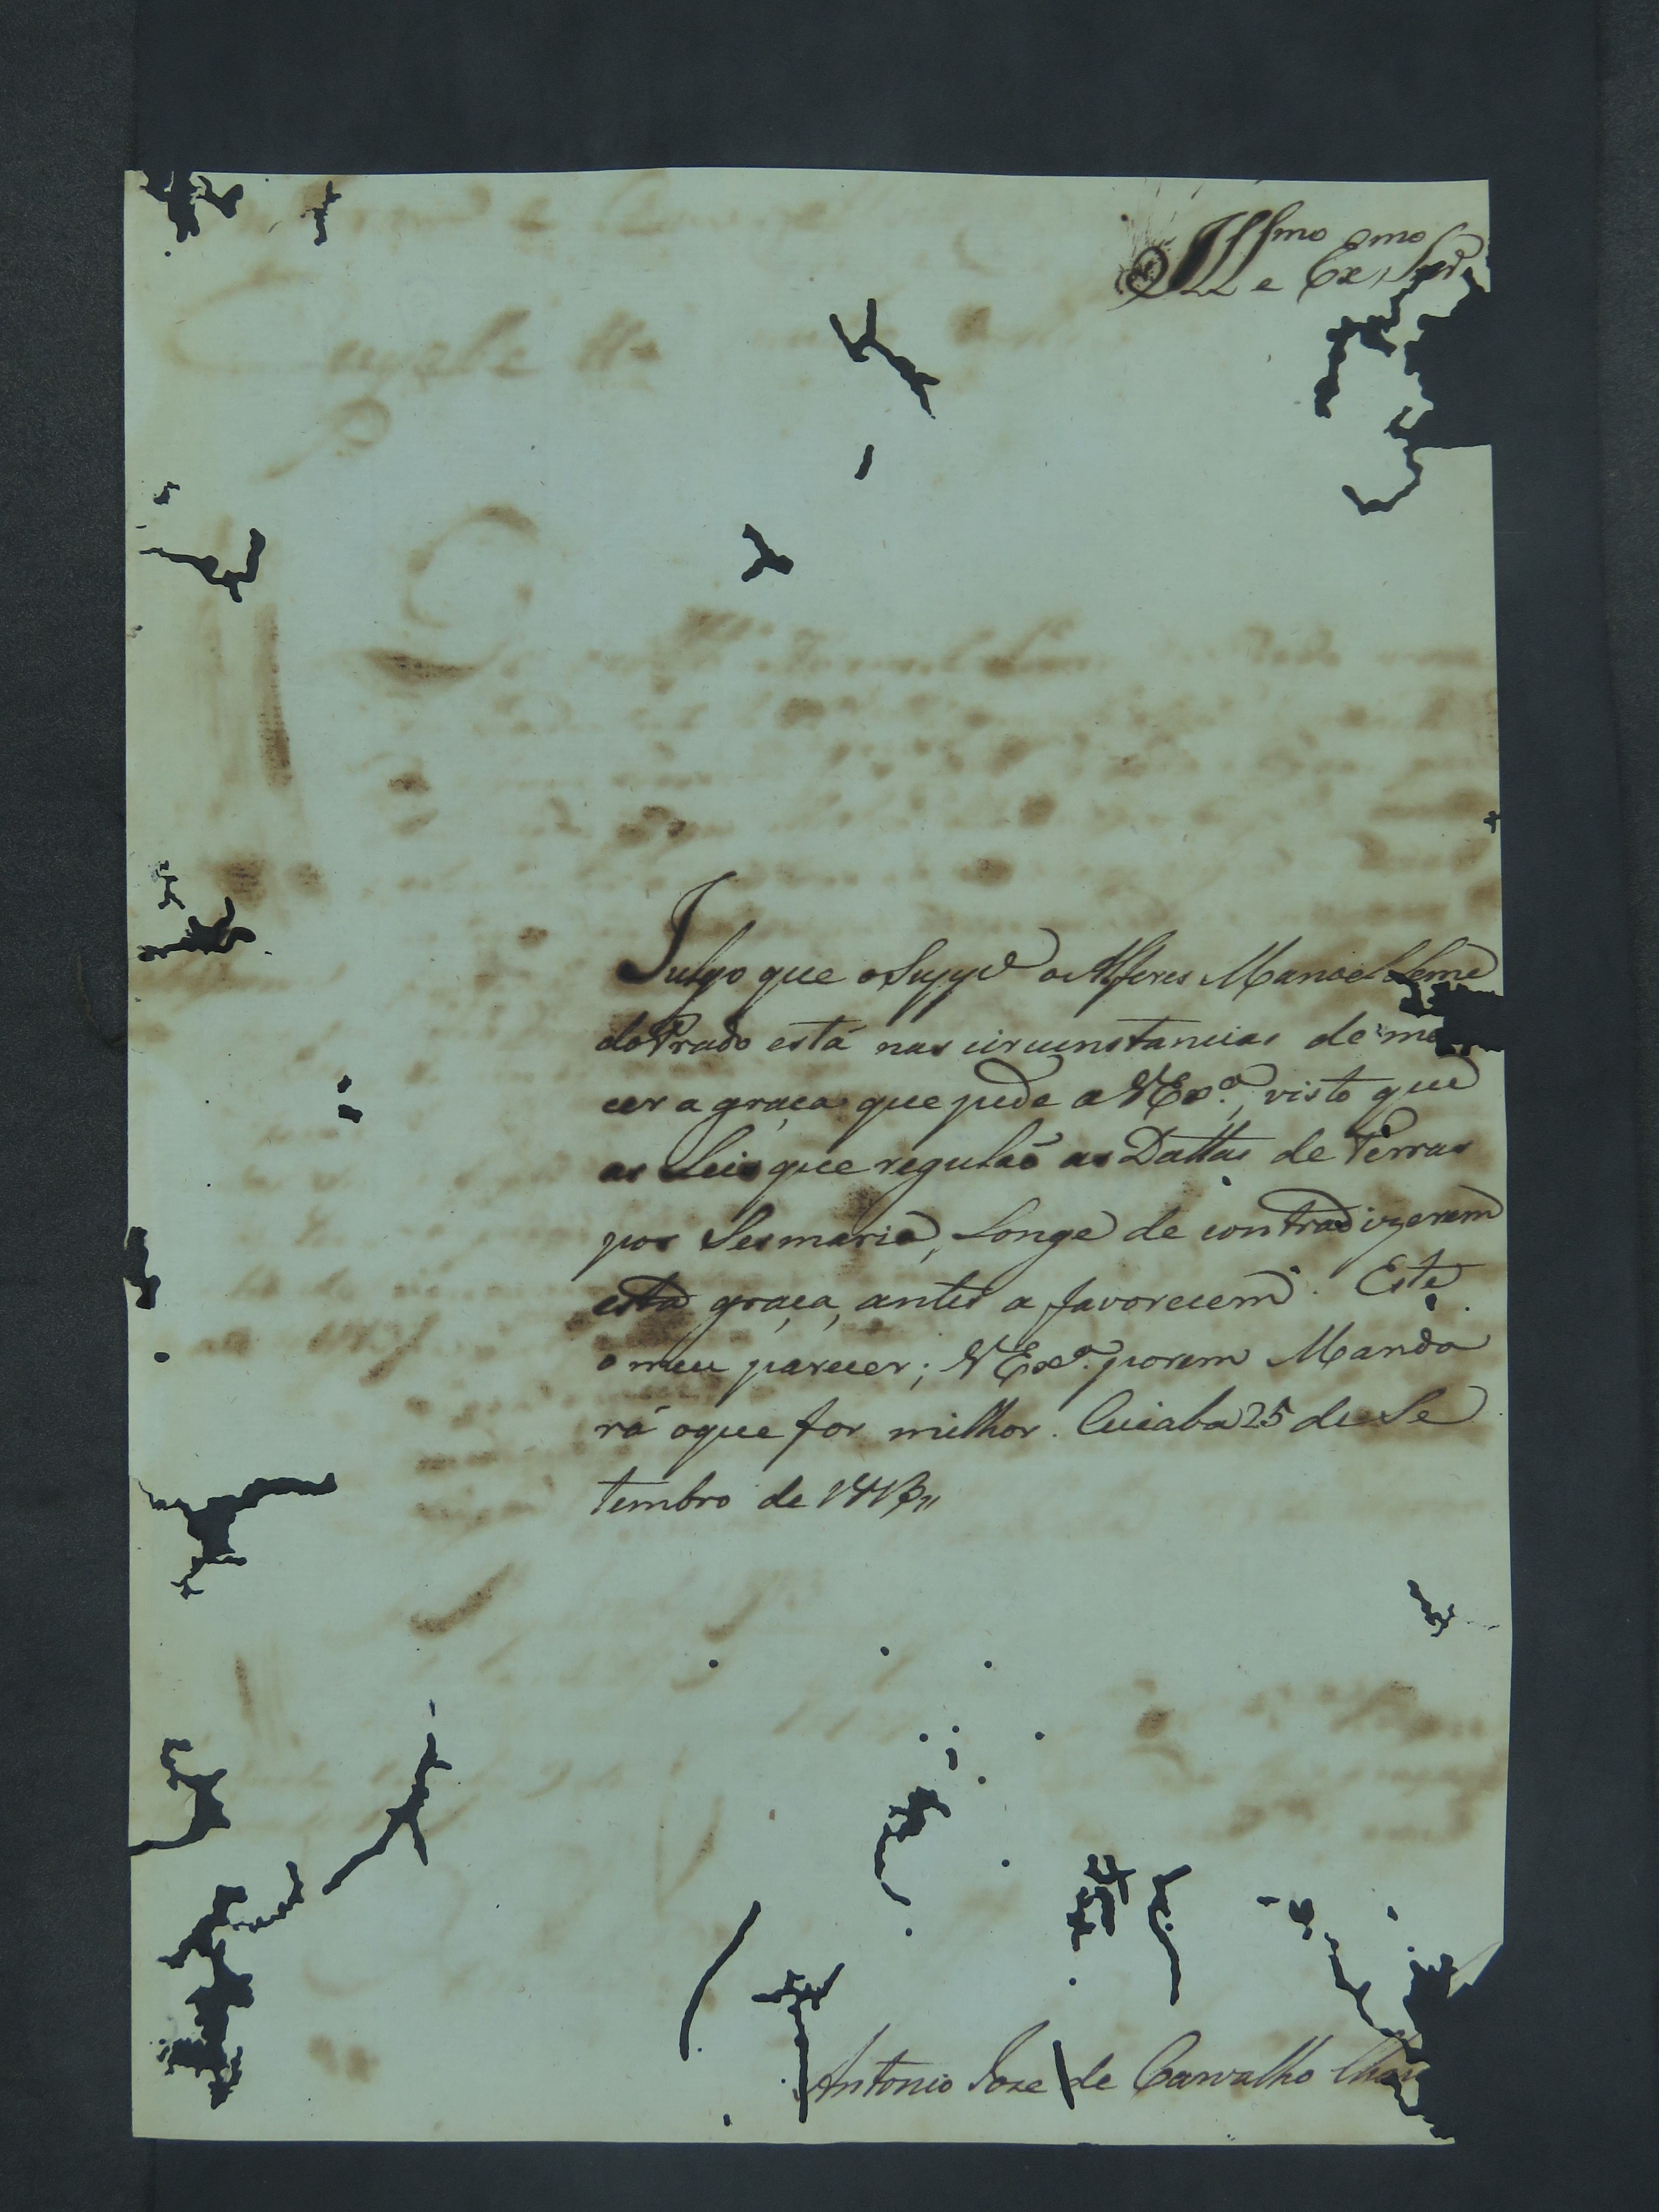 Ill.mo e Ex.mo Snr.
Julgo que o Supp.e o Alferes Manoel Leme
do Prado está nas circunstancias de me
cer a graça que pede a V Ex.a, visto que
as Leis que regulaõ as Dattas de Terras
por Sesmaria, Longe de contradizerem
esta graça, antes a favorecem. Este
o meu parecer; V Ex.a porem Manda
rá oque for milhor. Cuiaba 25 de Se
tembro de
Antonio Joze de Carvalho